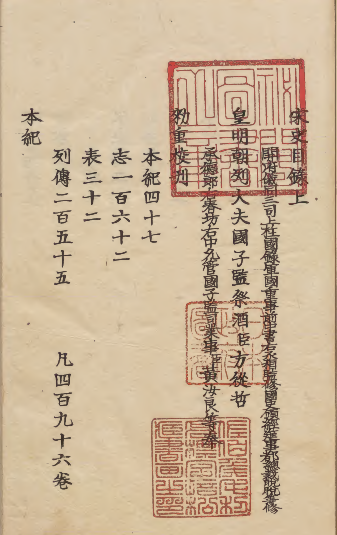 宋史目錄上
開府儀同三司上柱國錄軍國重事前中書右丞相監修國史領經筵事都總裁脫脫等修
皇明朝列大夫國子監祭酒臣方從哲
承德郎右春坊右中允管國子監司業事臣黃汝良等奉
勑重校刊
本紀四十七
志一百六十二
表三十二
列傳二百五十五
凡四百九十六卷
本紀